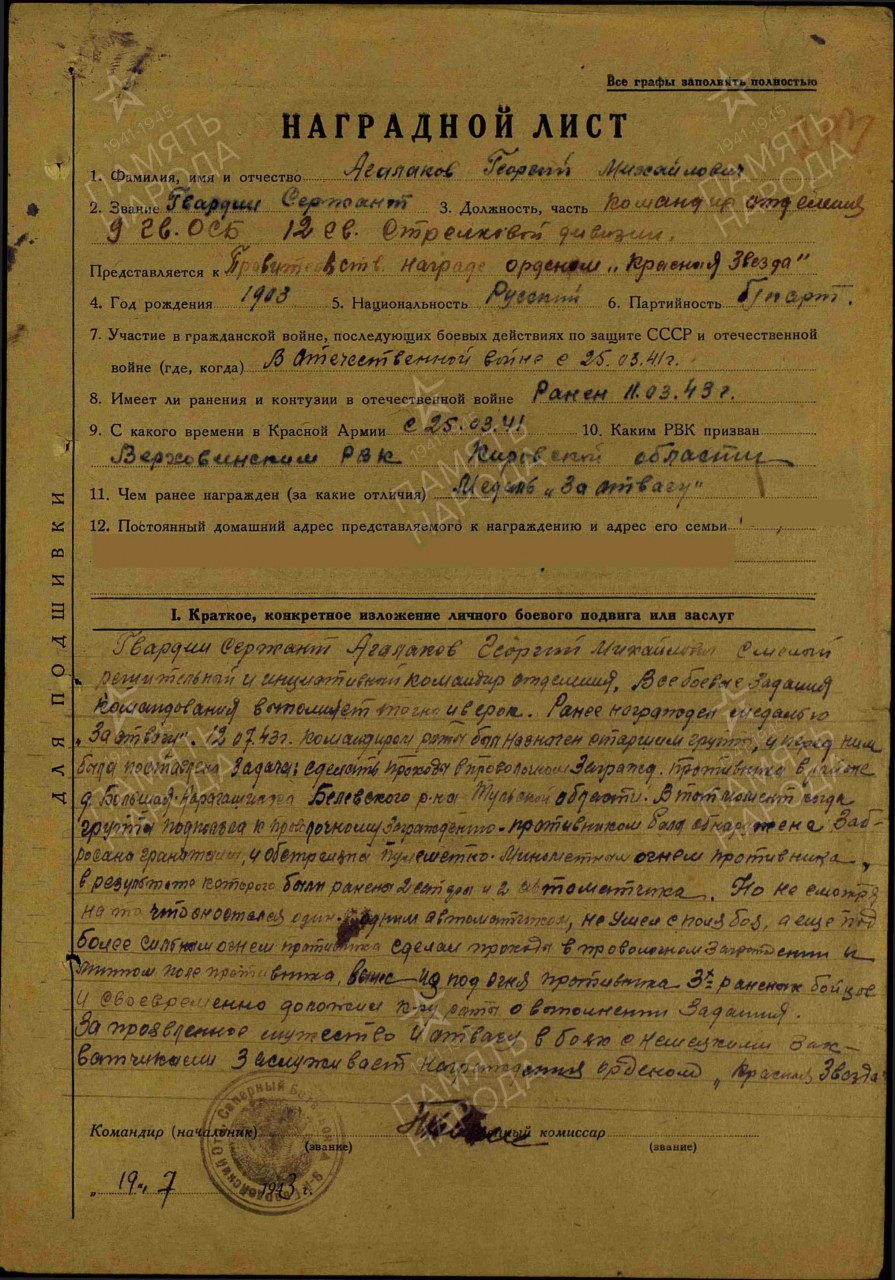 Все графы заполнить полностью
НАГРАДНОЙ ЛИСТ
1. Фамилия, имя и отчество Агалаков Георгий Михайлович
2. Звание Гвардии Сержант 3. Должность, часть Командир отделения
9 Гв. ОСБ 12 Гв. Стрелковой дивизии.
Представляется к Правительств. награде орденом „Красная Звезда"
4. Год рождения 1903 5. Национальность Русский 6. Партийность б/парт.
7. Участие в гражданской войне, последующих боевых действиях по защите СССР и отечественной
войне (где, когда) В Отечественной войне с 25.03.41г.
8. Имеет ли ранения и контузии в отечественной войне Ранен 11.03.43г.
9. С какого времени в Красной Армии с 25.03.41 10. Каким РВК призван
Верховинским РВК Кировской области
11. Чем ранее награжден (за какие отличия) Медаль „За отвагу"
12. Постоянный домашний адрес представляемого к награждению и адрес его семьи
I. Краткое, конкретное изложение личного боевого подвига или заслуг
Гвардии Сержант Агалаков Георгий Михайлович смелый
решительный и инициативный командир отделения. Все боевые задания
командования выполняет точно и в срок. Ранее награжден медалью
„За отвагу". 12.07.43г. командиром роты был назначен старшим группы, и перед ним
была поставлена задача: сделать проходы в проволочном загражд. противника в районе
д. Большая Белевского р-на Тульской области. В тот момент когда
группа подползла к проволочному заграждению противником была обнаружена Заб-
росана гранатами, и обстреляна пулеметно-минометным огнем противника,
в результате которого были ранены 2 сапера и 2 автоматчика. Но не смотря
на то что остался один с одним автоматчиком, не ушел с поля боя, а еще под
более сильным огнем противника сделал проходы в проволочном заграждении и
минном поле противника, вынес из под огня противника 3х раненых бойцов
и своевременно доложил к-ру роты о выполнении задания.
За проявленное мужество и отвагу в боях с немецкими зах-
ватчиками Заслуживает награждения орденом „Красная Звезда
Командир (начальник) комиссар
(звание) (звание)
„19" 7 1943 г.
ДЛЯ ПОДШИВКИ
1941-1945
ПАМЯТЬ
НАРОДА